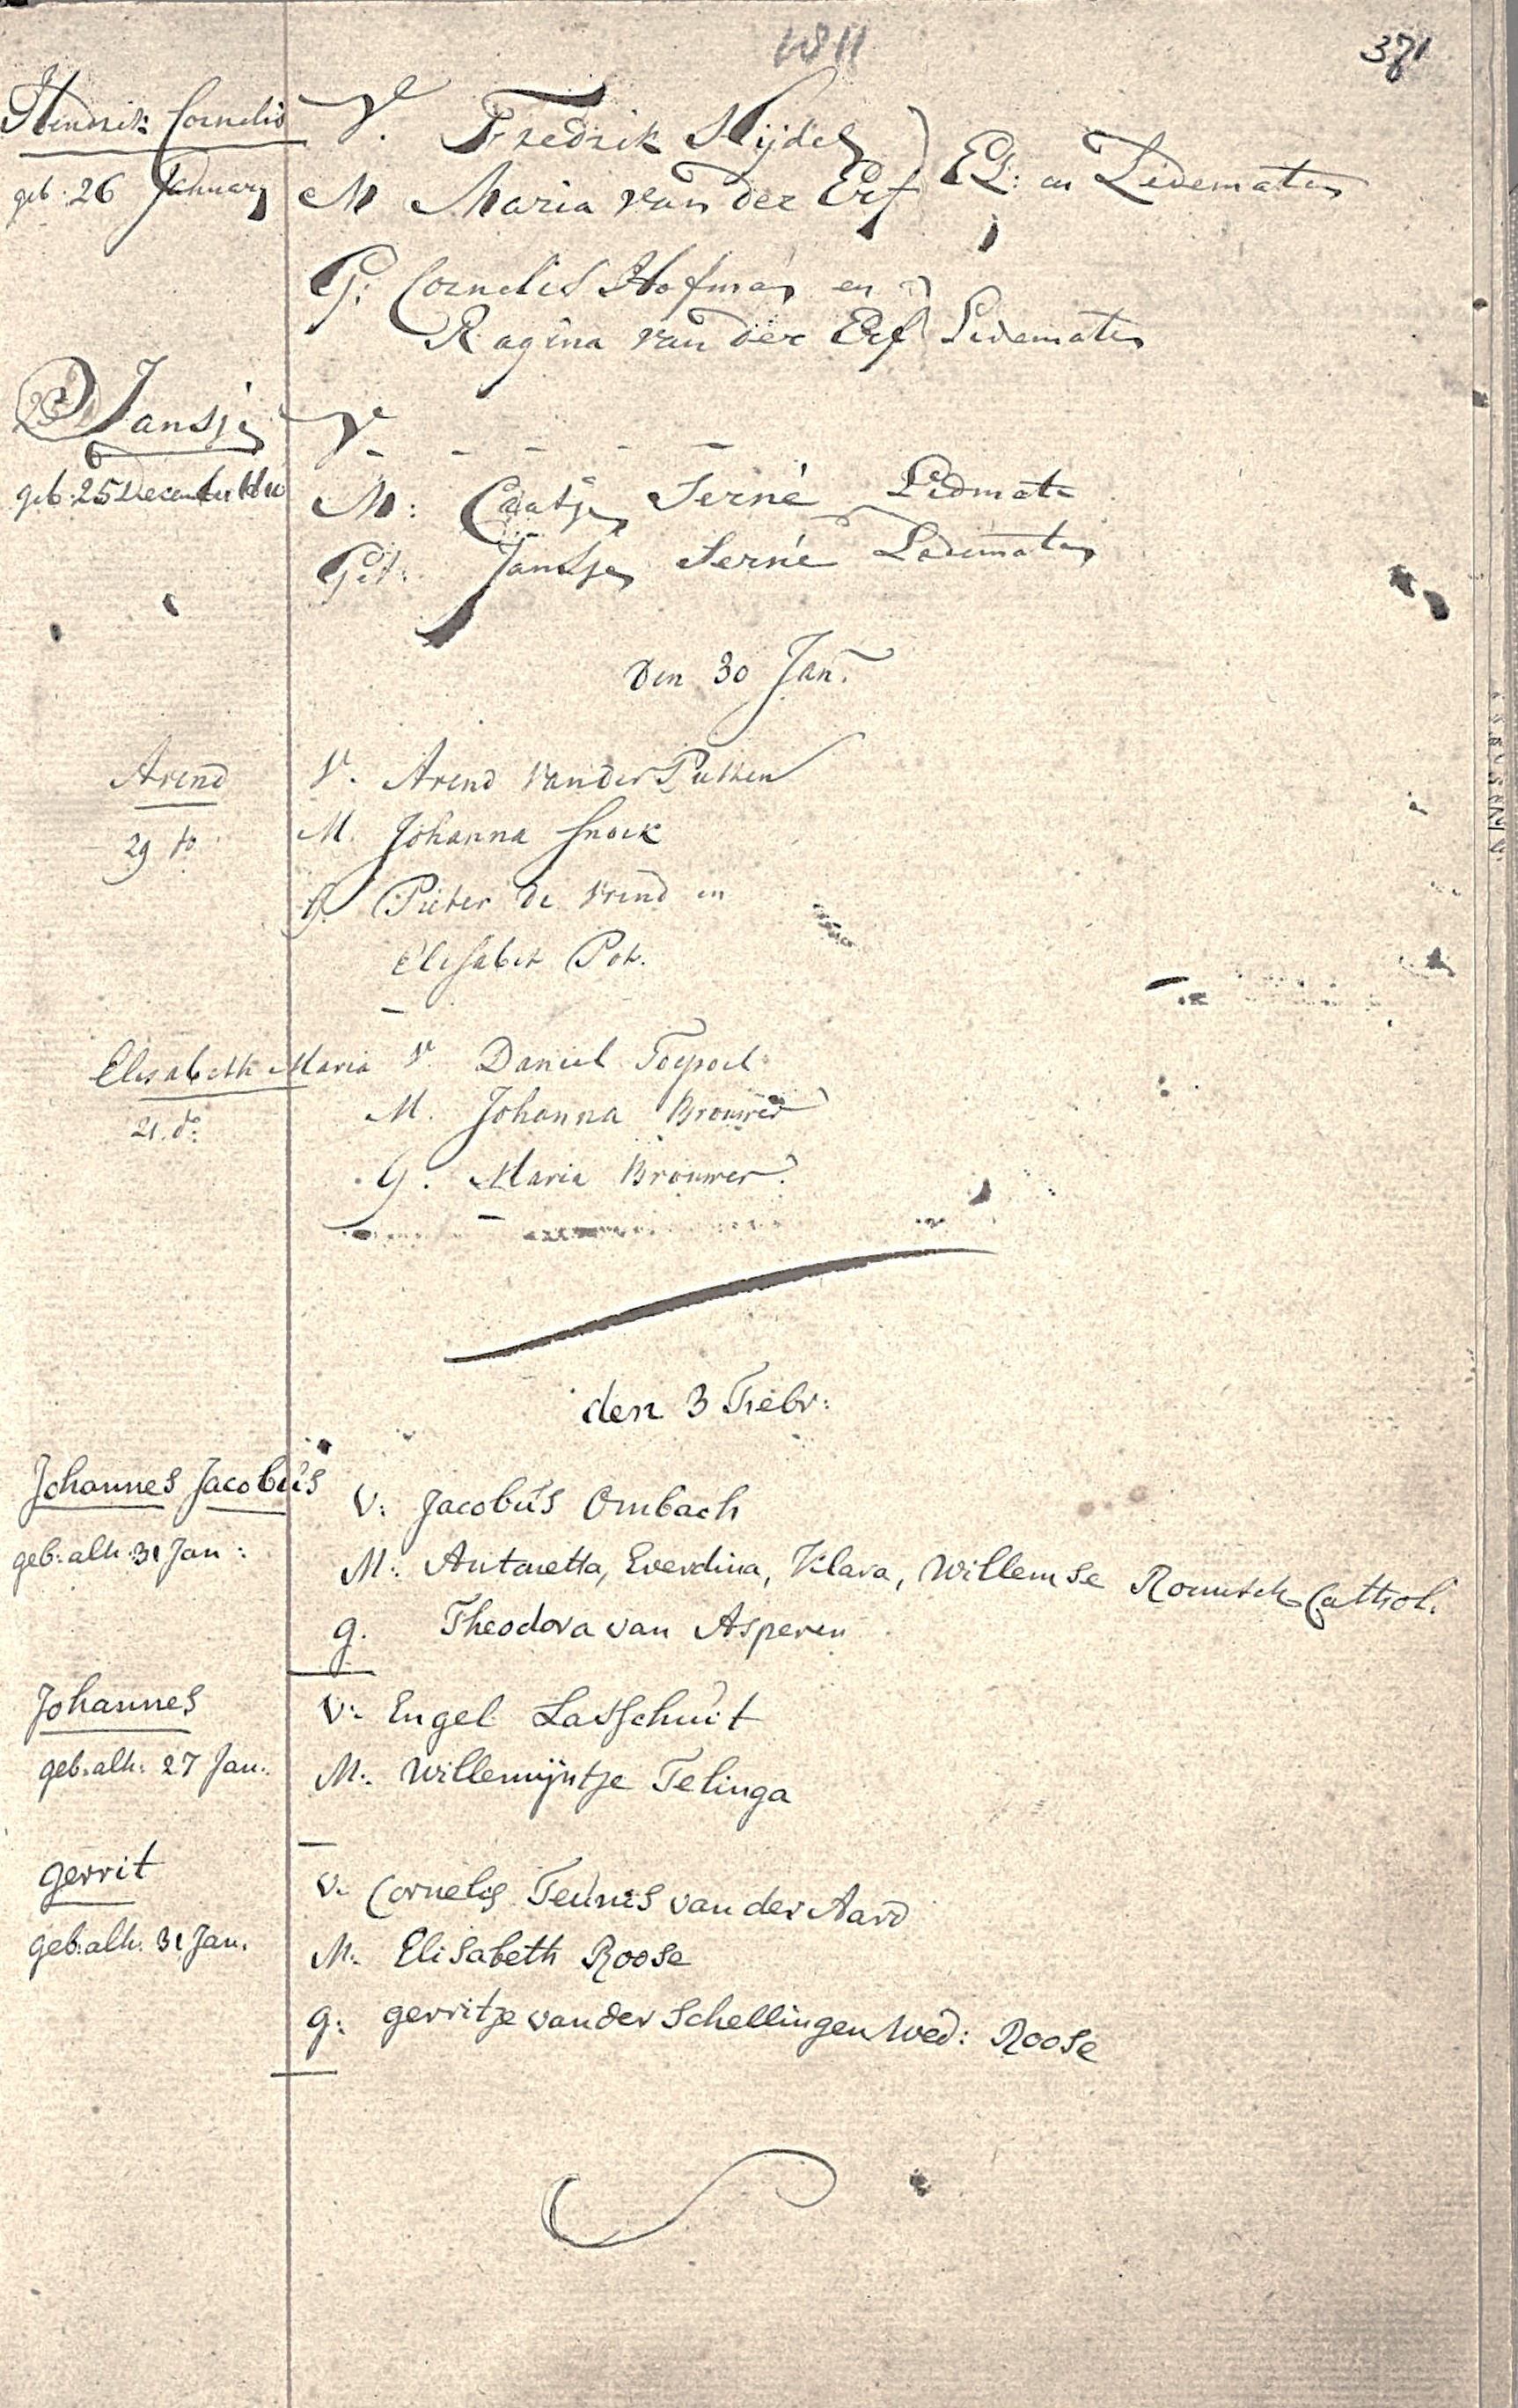 1811
371
Hendrik Cornelis
V. Fredrik Nijdel
geb: 26 January
M Maria van der Erf
EL: en Ledematen
G: Cornelis Hofman en
Ragina van der Erf Ledematen
Jansje
V. - - - - -
geb: 25 December 1810
M: Caatje Serné Ledmate
Get: Jansje Serné Ledematen
Den 30 Jan:
Arend
V. Arend van der Putten
29 do
M. Johanna Snoek
G. Pieter de Vrind en
Elisabet Pot.
Elisabeth Maria
V Daniel Toepoel
21. do:
M. Johanna Brouwer
G. Maria Brouwer.
den 3 Febr:
Johannes Jacobus
V: Jacobus Ombach
geb: alh: 31 Jan:
M: Antonetta, Everdina, Klara, Willemse Romisch Cathol.
g. Theodora van Asperen
Johannes
V: Engel Lasschuit
geb: alh: 27 Jan:
M: Willemijntje Telinga
gerrit
V. Cornelis Teunis van der Aard
geb: alh: 31 Jan.
M. Elisabeth Roose
g: gerritje van der Schellingen Wed: Roose